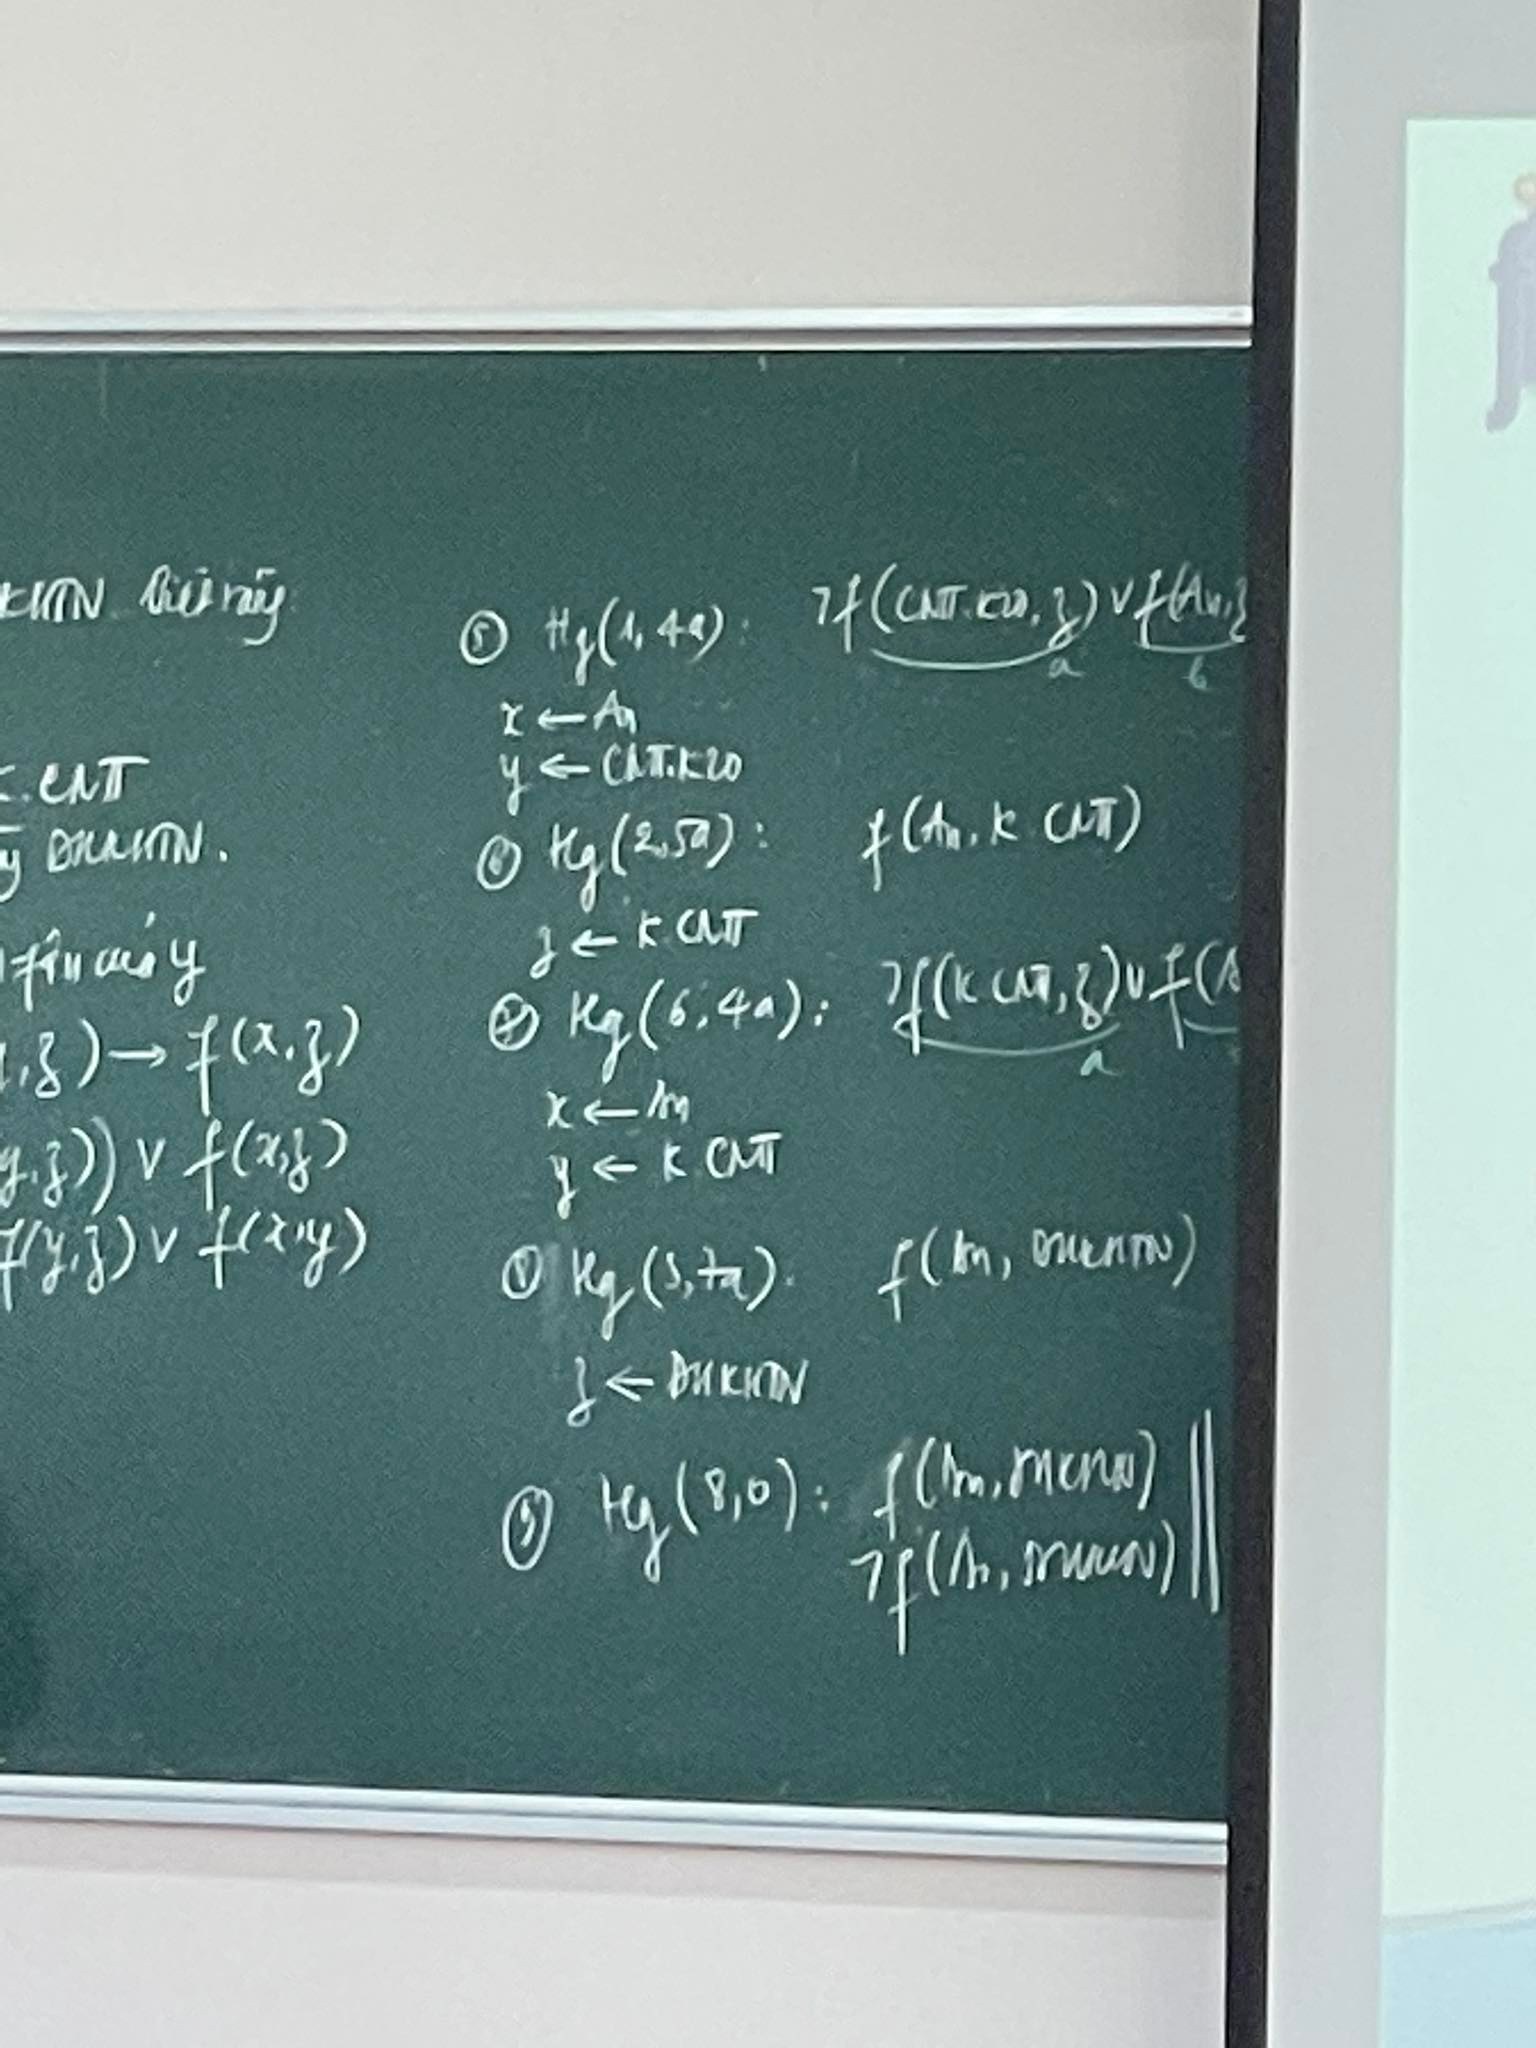 KHTN biết rằng
K.CNTT
ĐHKHTN.
y
,z) → f(x,z)
y,z)) ∨ f(x,z)
f(y,z) ∨ f(x,y)
⑤ Hg(1, 4a): ¬f(CNTT.K20, z) ∨ f(An,z
a b
x ← An
y ← CNTT.K20
⑥ Hg(2,5a): f(An, K CNTT)
z ← K CNTT
⑦ Hg(6,4a): ¬f(K CNTT, z) ∨ f(A
a
x ← An
y ← K CNTT
⑧ Hg(3,7a): f(An, ĐHKHTN)
z ← ĐHKHTN
⑨ Hg(8,0): f(An, ĐHKHTN)
¬f(An, ĐHKHTN)